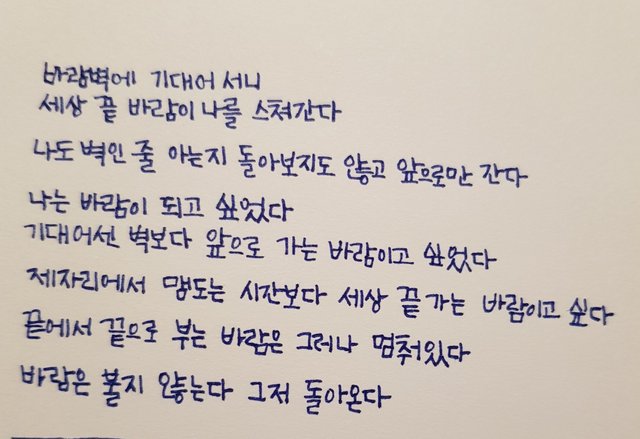 바람벽에 기대어 서니
세상 끝 바람이 나를 스쳐간다
나도 벽인 줄 아는지 돌아보지도 않고 앞으로만 간다
나는 바람이 되고 싶었다
기대어선 벽보다 앞으로 가는 바람이고 싶었다
제자리에서 맴도는 시간보다 세상 끝 가는 바람이고 싶다
끝에서 끝으로 부는 바람은 그러나 멈춰있다
바람은 불지 않는다 그저 돌아온다